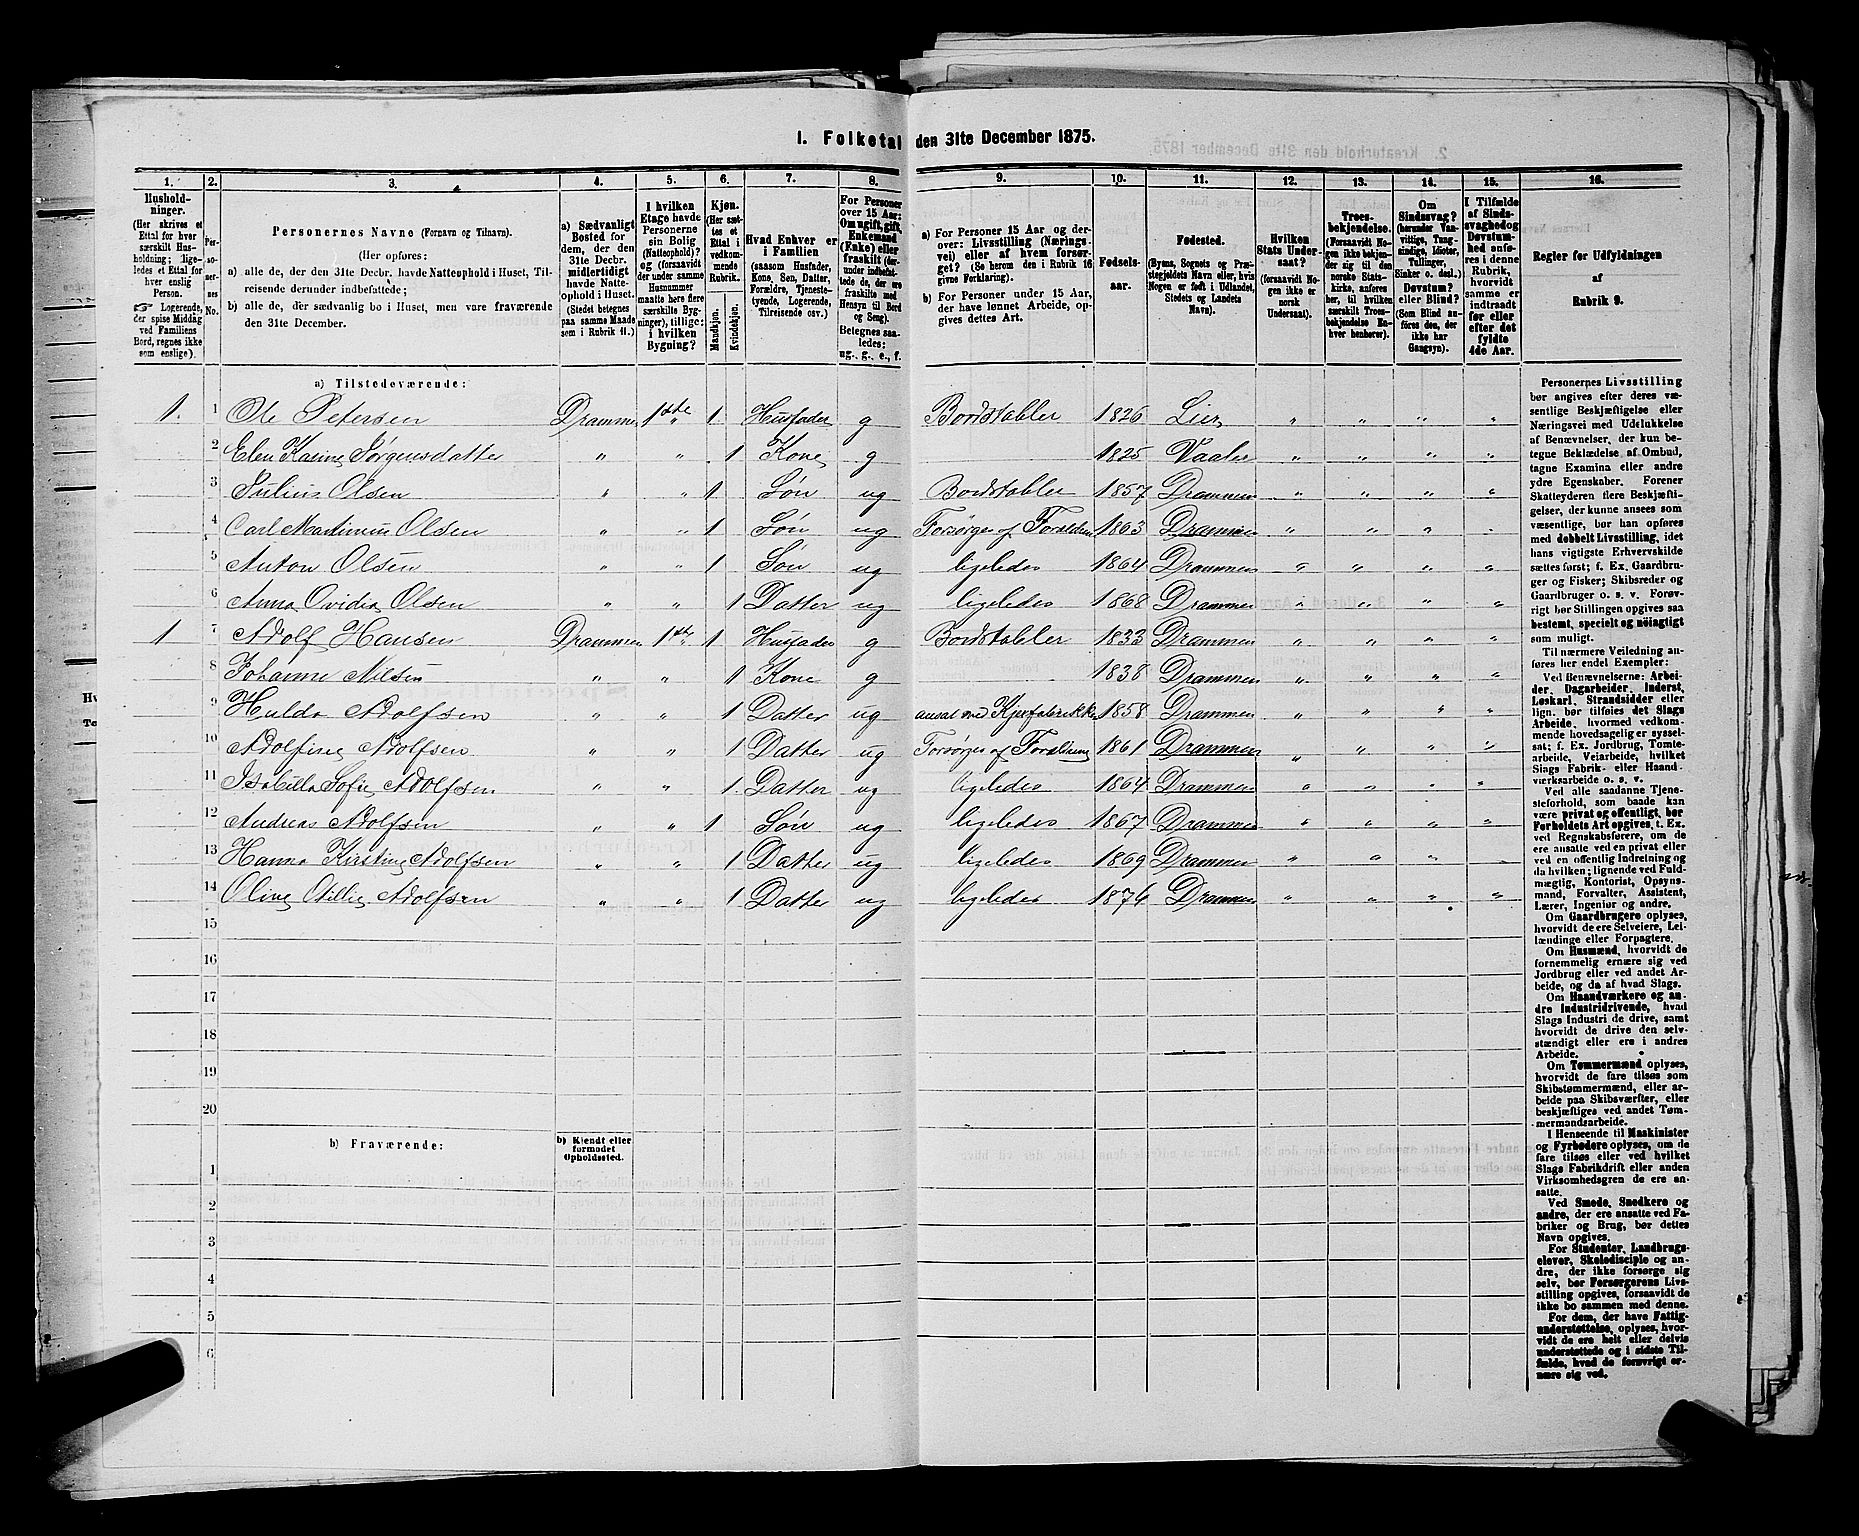 1. Folketal den 31te December 1875.
1. 2. 3. 4. 5. 6. 7. 8. 9. 10. 11. 12. 13. 14. 15. 16.
Husholdninger.
(Her skrives et
Ettal for hver
særskilt Husholdning;
ligeledes
et Ettal for
hver enslig
Person.
☞ Logerende,
der spise Middag
ved Familiens
Bord, regnes ikke
som enslige).
Personernes No.
Personernes Navne (Fornavn og Tilnavn).
(Her opføres:
a) alle de, der den 31te Decbr. havde Natteophold i Huset, Tilreisende
derunder indbefattede;
b) alle de, der sædvanlig bo i Huset, men vare fraværende
den 31te December.
a) Sædvanligt
Bosted for
dem, der den
31te Decbr.
midlertidigt
havde Natteophold
i Huset.
(Stedet betegnes
paa samme Maade
som i Rubrik 11.)
I hvilken
Etage havde
Personerne
sin Bolig
(Natteophold)?
og (forsaavidt
der under samme
Husnummer
maatte høre flere
særskilte Bygninger),
tillige:
i hvilken
Bygning?
Kjøn.
(Her sættes
et
Ettal i
vedkommende
Rubrik.
Mandkjøn.
Kvindekjøn.
Hvad Enhver er
i Familien
(saasom Husfader,
Kone, Søn, Datter,
Forældre, Tjenestetyende,
Logerende,
Tilreisende osv.)
For Personer
over 15 Aar:
Om ugift, gift,
Enkemand
(Enke) eller
fraskilt (derunder
indbefattede
de, der ere
fraskilte med
Hensyn til Bord
og Seng).
Betegnes saaledes:
ug., g., e., f.
a) For Personer 15 Aar og derover:
Livsstilling (Næringsvei)
eller af hvem forsørget?
(Se herom den i Rubrik 16
givne Forklaring).
b) For Personer under 15 Aar,
der have lønnet Arbeide, opgives
dettes Art.
Fødselsaar.
Fødested.
(Byens, Sognets og Præstegjeldets
Navn eller, hvis
Nogen er født i Udlandet,
Stedets og Landets
Navn).
Hvilken
Stats Undersaat?
(forsaavidt Nogen
ikke er
norsk
Undersaat).
Troesbekjendelse.
(Forsaavidt Nogen
ikke bekjender
sig til den
norske Statskirke,
anføres
her, til hvilken
særskilt Troesbekjendelse
Enhver
henhører).
Om
Sindssvag?
(herunder Vaavittige,
Tungsindige,
Idioter,
Tullinger,
Sinker o. desl.)
Døvstum?
eller Blind?
(Som Blind anføres
den, der
ikke har
Gangsyn).
I Tilfælde
af Sindssvaghed
og
Døvstumhed
anføres
i denne
Rubrik,
hvorvidt
samme er
indtraadt
før eller
efter det
fyldte
4de Aar.
Regler før Udfyldningen
af
Rubrik 9.
a) Tilstedeværende:
1. 1 Ole Petersen Drammen 1ste " 1. Husfader g Bordstabler 1826 Lier " " " "
2 Elen Karine Jørgensdatter " " 1 Kone g 1825 Vaaler " " " "
3 Julius Olsen " " 1 Søn ug Bordstabler 1857 Drammen " " " "
4 Carl Martinius Olsen " " 1 Søn ug Forsørges af Forældrene 1863 Drammen " " " "
5 Anton Olsen " " 1 Søn ug ligeledes 1864 Drammen " " " "
6 Anna Ovidia Olsen " " 1 Datter ug ligeledes 1868 Drammen " " " "
1 7 Adolf Hansen Drammen 1ste " 1 Husfader g Bordstabler 1833 Drammen " " " "
8 Johanne Nilsen " " 1 Kone g 1838 Drammen " " " "
9 Hulda Adolfsen " " 1 Datter ug ansat ved 1858 Drammen " " " "
10 Adolfine Adolfsen " " 1 Datter ug Forsørges af Forældrene 1861 Drammen " " " "
11 Isabella Sofie Adolfsen " " 1. Datter ug ligeledes 1864 Drammen " " " "
12 Andreas Adolfsen " " 1 Søn ug ligeledes 1867 Drammen " " " "
13 Hanna Kirstine Adolfsen " " 1 Datter ug ligeledes 1869 Drammen " " " "
14 Oline Adolfsen " " 1 Datter ug ligeledes 1874 Drammen " " " "
15
16
17
18
19
20
b) Fraværende:
b) Kjendt eller
formodet
Opholdssted.
1
2
3
4
5
6
Personernes Livsstilling
bør angives efter deres væsentlige
Beskjæftigelse eller
Næringsvei med Udelukkelse
af Benævnelser, der kun betegne
Beklædelse af Ombud,
tagne Examina eller andre
ydre Egenskaber. Forener
Skatteyderen flere Beskjæftigelser,
der kunne ansees som
væsentlige, bør han opføres
med dobbelt Livsstilling, idet
hans vigtigste Erhvervskilde
sættes først; f. Ex. Gaardbruger
og Fisker; Skibsreder og
Gaardbruger o. s. v. Forøvrigt
bør Stillingen opgives saa
bestemt, specielt og nøiagtigt
som muligt.
Til nærmere Veiledning anføres
her endel Exempler:
Ved Benævnelserne: Arbeider,
Dagarbeider, Inderst,
Løskarl, Strandsidder eller
lign. bør tilføies det Slags
Arbeide, hvormed vedkommende
hovedsagelig er sysselsat;
f. Ex. Jordbrug, Tomtearbeide,
Veiarbeide, hvilket
Slags Fabrik- eller Haandværksarbeide
o. s. v.
Ved alle saadanne Tjenesteforhold,
som baade kan
være privat og offentligt, bør
Forholdets Art opgives, t. Ex.
ved Regnskabsførere, om de
ere ansatte ved en privat eller
ved en offentlig Indretning og
da hvilken; lignende ved Fuldmægtig,
Kontorist, Opsynsmand,
Forvalter, Assistent,
Lærer, Ingeniør og andre.
Om Gaardbrugere oplyses,
hvorvidt de ere Selveiere, Leilændinge
eller Forpagtere.
Om Husmænd, hvorvidt de
fornemmelig ernære sig ved
Jordbrug eller ved andet Arbeide,
og da af hvad Slags.
Om Haandværkere og andre
Industridrivende, hvad
Slags Industri de drive, samt
hvorvidt de drive den selvstændigt
eller ere i andres
Arbeide.
Om Tømmermænd oplyses,
hvorvidt de fare tilsøs som
Skibstømmermænd, eller arbeide
paa Skibsværfter, eller
beskjæftiges ved andet Tømmermandsarbeide.
I Henseende til Maskinister
og Fyrbødere oplyses, om de
fare tilsøs eller ved hvilket
Slags Fabrikdrift eller anden
Virksomhedsgren de ere ansatte.
Ved Smede, Snedkere og
andre, der ere ansatte ved Fabriker
og Brug, bør dettes
Navn opgives.
For Studenter, Landbrugselever,
Skoledisciple og andre,
der ikke forsørge sig
selv, bør Forsørgerens Livsstilling
opgives, forsaavidt de
ikke bo sammen med denne.
For dem, der have Fattigunderstøttelse,
oplyses, hvorvidt
de ere helt eller delvis
understøttede og i sidste Tilfælde,
hvad de forøvrigt ernære
sig ved.